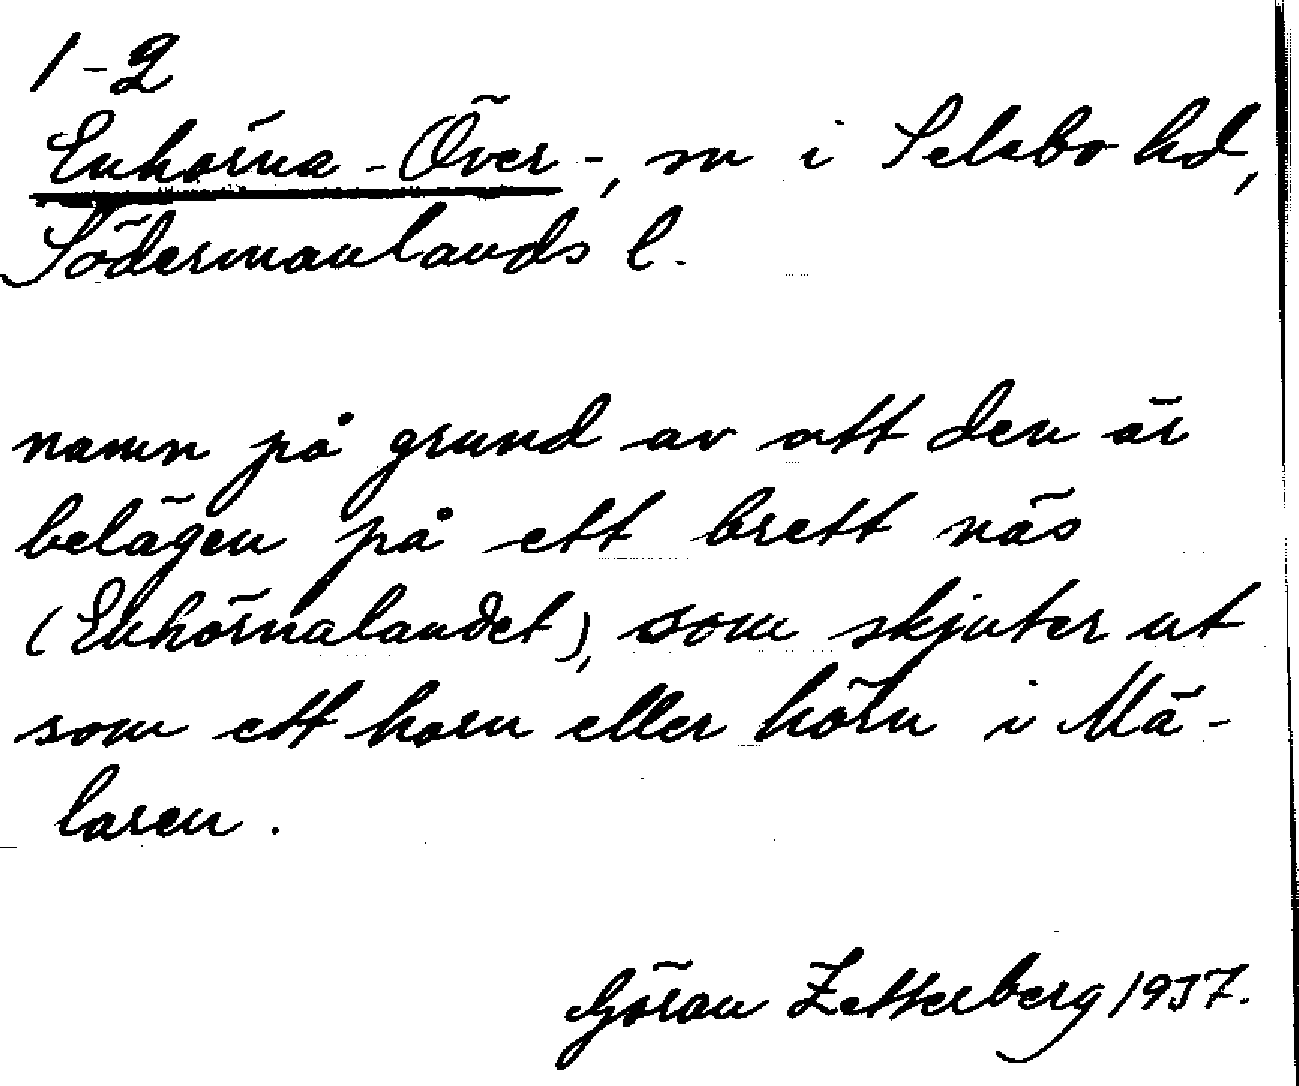 1-2
Enhörna-Över-, sn i Selebo hd,
Södermanlands l.
namn på grund av att den är
belägen på ett brett näs
(Enhörnalandet), som skjuter ut
som ett horn eller hörn i Mä-
laren.
Göran Zetterberg 1937.